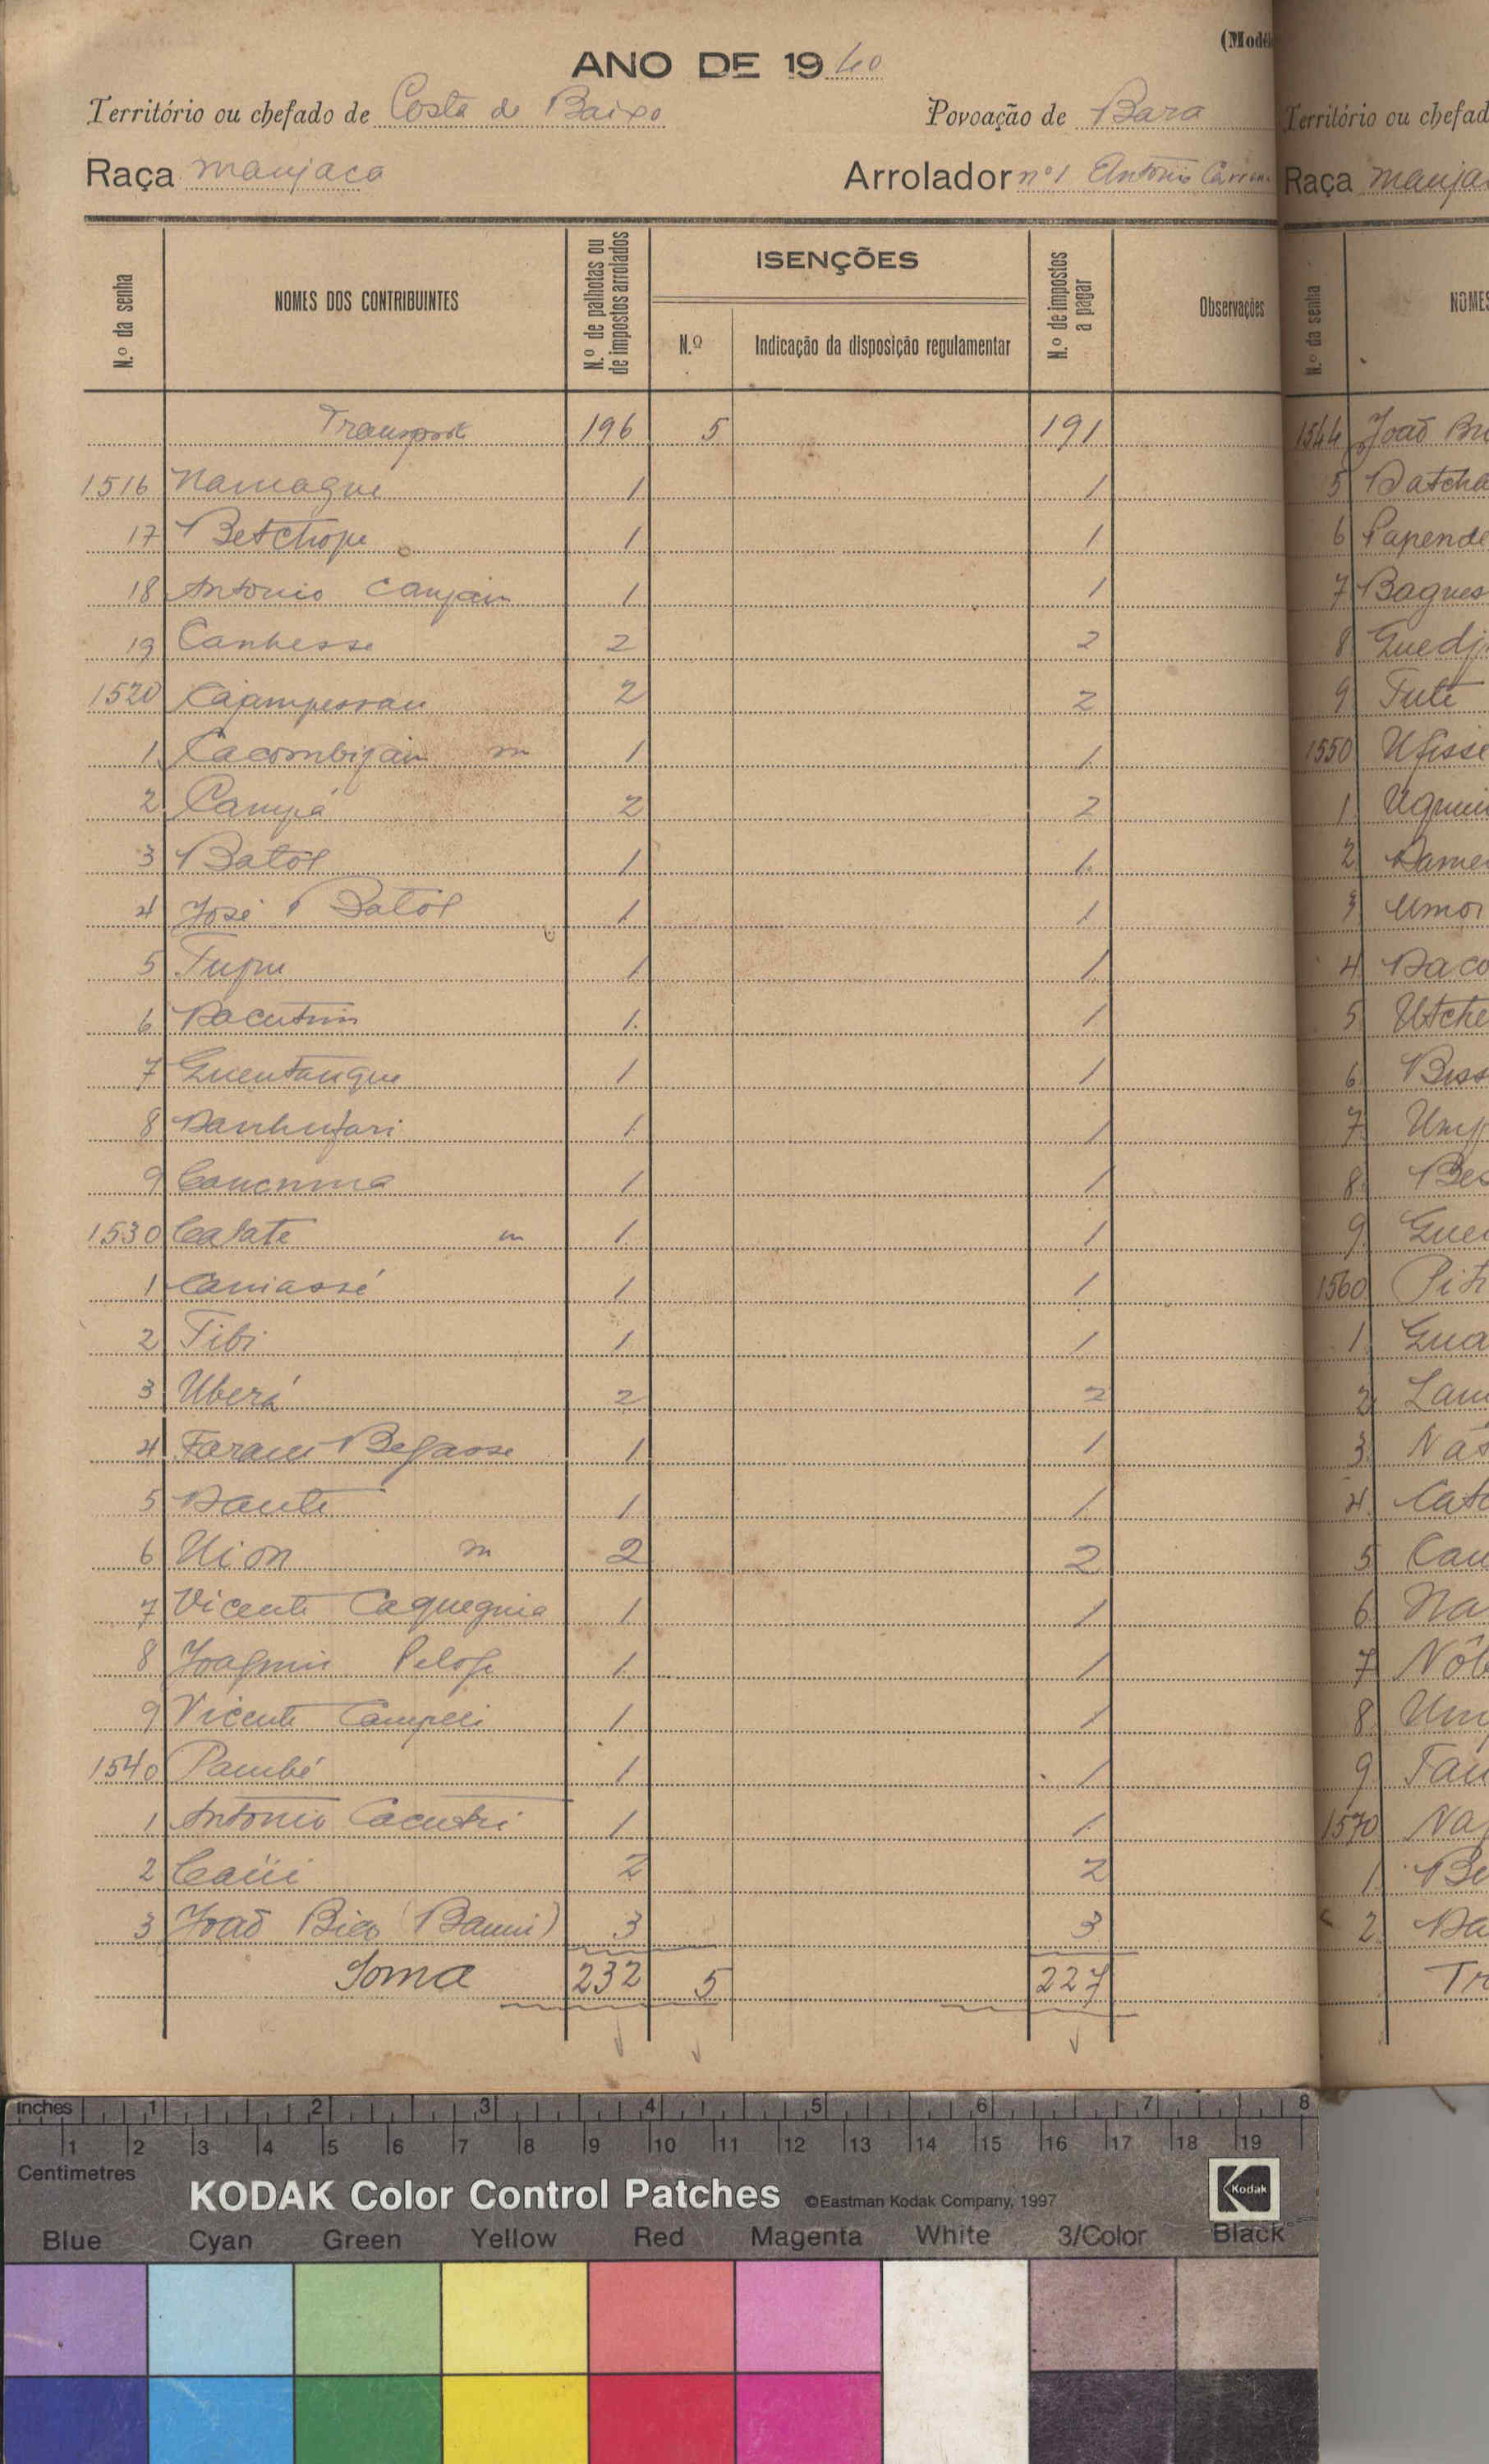 (Mode
ANO DE 1940
Território ou chefado de Costa de Baixo Povoação de Bara
Raça manjaca Arrolador nº1 António
N.º da senha NOMES DOS CONTRIBUINTES N.º de palhotas ou de impostos arrolados ISENÇÕES N.º Indicação da disposição regulamentar N.º de impostos a pagar Observações
Transporte 196 5 191
1516 Namague 1 1
17 Betchope 1 1
18 Antonio Canjain 1 1
19 Canhesse 2 2
1520 Cajampessan 2 2
1 Cacombijain m 1 1
2 Campá 2 2
3 Batol 1 1
4 José Batol 1 1
5 Tupu 1 1
6 1 1
7 Guentangue 1 1
8 Danhufari 1 1
9 1 1
1530 Calate m 1 1
1 Caniassé 1 1
2 Tibi 1 1
3 Uberá 2 2
4 Begasse 1 1
5 1 1
6 Uion m 2 2
7 Vicente Caquegnia 1 1
8 Joaquim 1 1
9 Vicente Campeli 1 1
1540 Pambé 1 1
1 Antonio Cacutri 1 1
2 Caüi 2 2
3 João Bico (Banni) 3 3
Soma 232 5 227
Território ou chefad
Raça manja
N.º da senha NOMES
1544 João
5 Datcha
6 Papende
7 Bagues
8 Guedj
9 Futé
1550 Ufisse
1
2 Dame
3 Umor
4 Daco
5 Utche
6 Biss
7 Ump
8 Bes
9 Gue
1560 Pit
1 Gua
2 Lam
3 Nás
4 Catc
5 Cau
6 Na
7 Nôb
8 Um
9 Tau
1570 Na
1 Be
2 Da
Tr
inches 1 2 3 4 5 6 7 8
1 2 3 4 5 6 7 8 9 10 11 12 13 14 15 16 17 18 19
Centimetres
KODAK Color Control Patches ©Eastman Kodak Company, 1997 Kodak
Blue Cyan Green Yellow Red Magenta White 3/Color Black